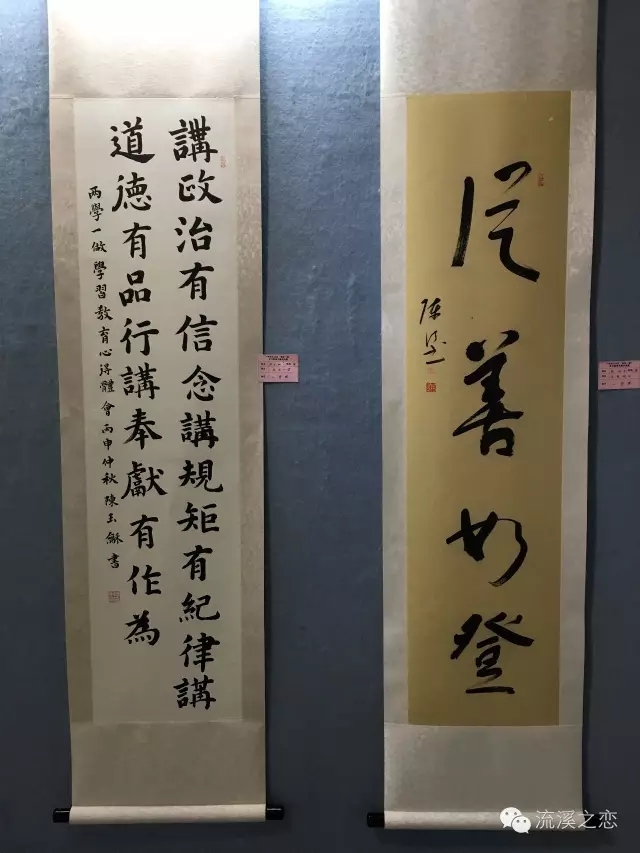 講政治有信念講規矩有紀律講
道德有品行講奉獻有作為
两學一做學習教育心得體會丙申仲秋陳玉龢書
從善如登
陳
流溪之恋